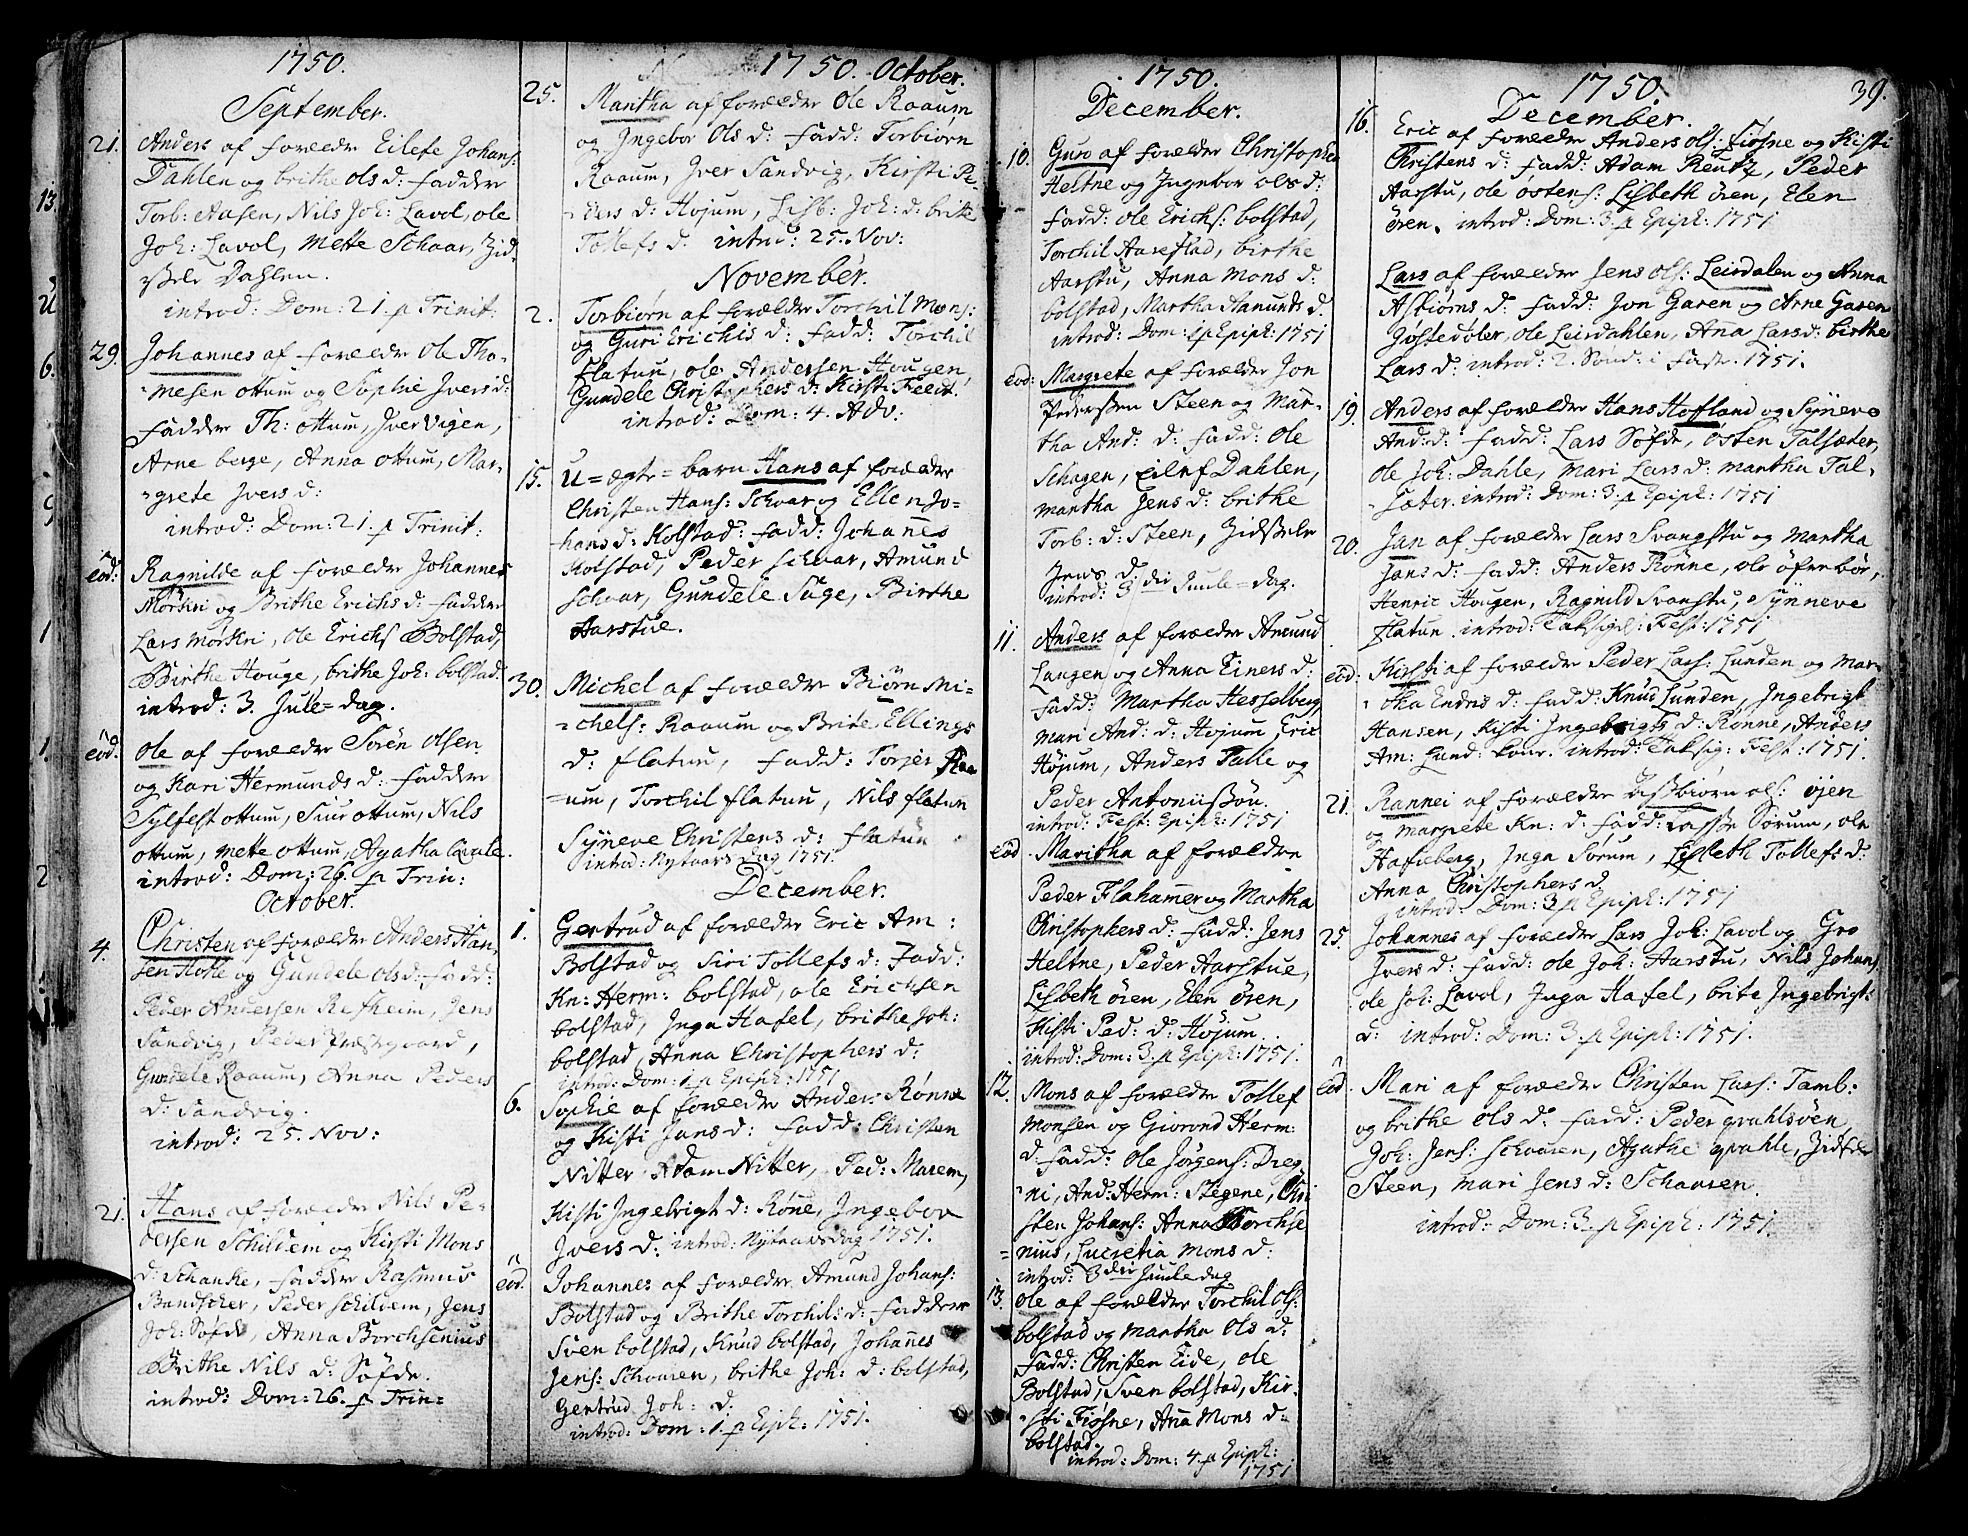 1750.
September.
21. Anders af forældre Eilefe Johans:
Dahlen og brithe ols d: faddere
Torb: Aasen, Nils Joh: Lavol, ole
Joh: Lavol, Mette Schaar, Zid-
ssele Dahlen.
introd: Dom: 21. p Trinit:
29. Johannes af forældre Ole Tho-
mesen ottum og Sophie Jvers d:
Fadder Th: ottum, Jver Vigen,
Arne berge, Anna ottum, Mar-
grete Jvers d:
introd: Dom: 21. p Trinit:
eod: Ragnilde af forældre Johannes
Mørkri og Brithe Erichs d: fadder
Lars Mørkri, ole Erichs Bolstad,
Birthe Houge, brithe Joh: bolstad.
introd: 3. Jule-dag.
eod. Ole af forældre Sørèn Olsen
og Kari Hermunds d: fadder
Sylfest ottum, Siur ottum, Nils
ottum, mette ottum, Agatha
introd: Dom: 26. p Trin:
October.
4. Christen af forældre Anders Han-
sen og Gundele ols d: fadd:
Peder Andersen Refheim, Jens
Sandvig, Peder Præstgaard,
Gundele Raaum, Anna Peders
d: Sandvig.
introd: 25. Nov:
21. Hans af forældre Nils Pe-
dersen Schildem og Kirsti Mons
d: Schanke, fadder Rasmus
Bandscher, Peder Schildem, Jens
Joh: Søfde, Anna Borchsenius
Brithe Nils d: Søfde.
introd: Dom: 26. p Trin=
1750. October.
25. Mantha af forældre Ole Raaum
og Ingebor Ols d: fadd: Torbiørn
Raaum, Jver Sandvig, Kirsti Pe-
ders d: Højum, Lisb: Joh: d: britte
Tollefs d. introd: 25. Nov:
November.
2. Torbiørn af forældre Torchil Mons:
og Guri Erichs d: fadd: Torchil
flatun, ole Andersen Hougen,
Gundele Christophers d: Kirsti Feedt.
introd: Dom: 4. Adv:
15. U=ægte=barn Hans af forældre
Christen Hans: Schaar og Ellen Jo-
hans d: Kolstad: fadd: Johañes
Kolstad, Peder schaar, Amund
schaar, Gundele Suge, Birthe
Aarstue.
30. Michel af forældre Biørn Mi-
chels: Raaum og Brite Ellings
d: flatun, fadd: Torjer Raa
=um, Torchil flatun, Nils flatun
Syneve Christens d: flatun
introd: Nytaars dag 1751.
December.
1. Gertrud af forældre Eric Am:
Bolstad og Siri Tollefs d: Fadd:
Kn: Herm: bolstad, ole Erichsen
bolstad, Inga Hafel, brithe Joh:
bolstad, Anna Christophers d:
introd: Dom: 1. p Epiph: 1751
6. Sophie af forældre Anders Rønne
og Kisti Jans d: fadd: Christen
Nitter Adam Nitter, Ped: Marem,
Kisti Ingebrigt d: Røñe, Ingebor
Jvers d: introd: Nytaarsdag 1751.
eod. Johannes af forældre Amund Johans:
Bolstad og Brithe Torchils: d: faddere
Sven bolstad, Knud bolstad, Johañes
Jens: Schaaren, brithe Joh: d: bolstad,
Gertrud Joh: d.
introd: Dom: 1. p Epiph: 1751.
1750.
December.
10. Guro af forældre Christopher
Heltne og Ingebor ols d:
fadd: ole Erichs: bolstad,
Torchil Aarestad, birthe
Aarstu, Anna Mons d:
bolstad, Martha Aamunds d.
introd: Dom: 1 p Epiph: 1751
eod: Margrete af forældre Jon
Pederssen Steen og Mar-
tha And: d: fadd: ole
Schagen, Eilef Dahlen,
martha Jens d: brithe
Torb: d: Steen, Zidssele
Jens d.
introd: 3 die Juule-dag.
11. Anders af forældre Amund
Langen og Anna Einers d:
fadd: Martha Hesselberg
mari And: d: Højum, Eric
Højum, Anders Talle og
Peder Antoniissøn.
introd: Fest: Epiph: 1751
eod. Maritha af forældre
Peder Flahamer og Martha
Christophers d: fadd: Jens
Heltne, Peder Aarstue,
Lisbeth ören, Elen ören,
Kisti Ped: d: Højum.
introd: Dom: 3. p Epiph: 1751.
12. Mons af forældre Tollef
Monsen og Giorond Herm:
d: fadd: ole Jørgens: Dreg
ni, And: Herm: Stegene, Chri
sten Johans: Anna Borchse
=nius, Lucretia Mons d:
introd: 3 die Juuledag
13. Ole af forældre Torchil ols:
bolstad og Martha Ols d:
fadd: Christen Eide, ole
Bolstad, Sven bolstad, Kir-
sti Fiøsne, Aña Mons d:
bolstad.
introd: Dom: 4. p Epiph:
1751
39.
1750.
December.
16. Eric af forældre Anders ols: Fiøsne og Kisti
Christens d: fadd: Adam Reutz, Peder
Aarstu, ole östens: Lisbeth ören, Elen
ören. introd: Dom: 3. p Epiph: 1751
Lars af forældre Jens ols: Leirdalen og Anna
Asbiørns d: fadd: Jon Garen og Arne Garen
Jostedøler, ole Leirdahlen, Aña Lars d: birthe
Lars d: introd: 2. Sønd: i faste. 1751.
19. Anders af forældre Hans Hofland og Syneve
And: d: fadd: Lars Søfde, östen Talsæter,
ole Joh: Dahle, mari Lars d: martha Tal-
sæter. introd: Dom: 3. p Epiph: 1751
20. Jan af forældre Lars Svangstu og Martha
Jans d: fadd: Anders Rønne, ole øfrebø,
Henric Hougen, Ragnild Svanstu, Synneve
flatun. introd: Taksigel: Fest: 1751
eod: Kirsti af forældre Peder Lars: Lunden og Mar-
ta Endres d: fadd: Knud Lunden, Ingebrigt
Hansen, Kisti Ingebrigts d: Rønne, Anders
Am: Lund: introd: Taksig: Fest: 1751.
21. Rannei af forældre Asbiørn ols: øjen
og margrete Kn: d: fadd: Lasse Sørum, ole
Hafseberg, Inga Sørum, Lisbeth Tollefs d:
Anna Christophers d
introd: Dom: 3 p Epiph: 1751
25. Johannes af forældre Lars Joh: Lavol og Gro
Jvers d: fadd: ole Joh: Aarstu, Nils Johans
ole Joh: Lavol, Inga Hafel, brite Ingebrigt:
d: introd: Dom: 3. p Epiph: 1751.
eod. Mari af forældre Christen Lars: Tamb:
og brithe ols d: fadd: Peder qvahlsøen
Joh: Jens: Schaaren, Agathe qvahle, Zidsele
Steen, mari Jens d: Schaaren.
introd: Dom: 3. p Epiph: 1751.